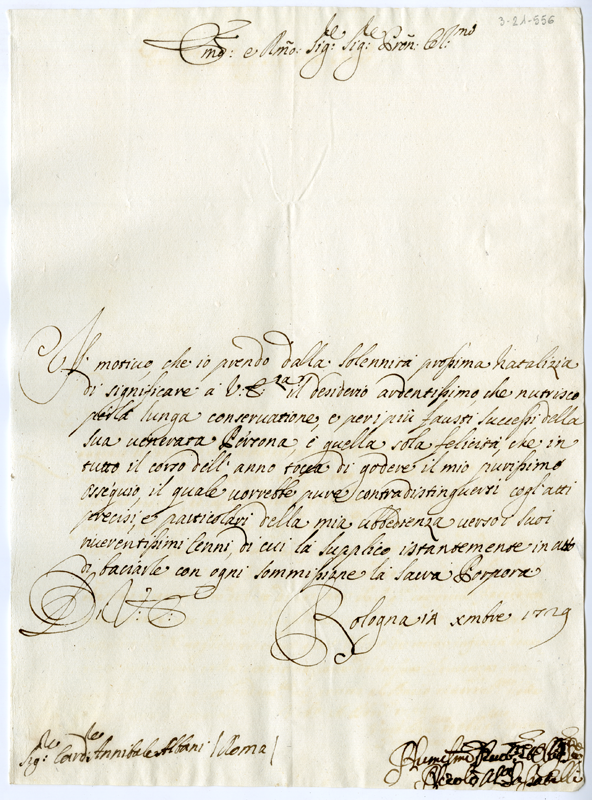 3-21-556
Emo: e Rmo: Sig:re Sig:re Pron: Col:mo
Il motivo, che io prendo dalla solennità prossima Natalizia
di significare a V: Eza il desiderio ardentissimo che nutrisco
per la lunga conservatione, e per i più fausti successi della
sua venerata Persona è quella sola felicità, che in
tutto il corso dell' anno tocca di godere il mio purissimo
ossequio, il quale vorrebbe pure contradistinguersi cogl' atti
precisi, e particolari della mia ubbedienza verso i suoi
riverentissimi Cenni, di cui la supplico istantemente in atto
di baciarle con ogni sommissione la Sacra Porpora
Di V: E:
Bologna 14 xmbre 1729
Sig:re Card:le Annibale Albani (Roma)
Humilmo